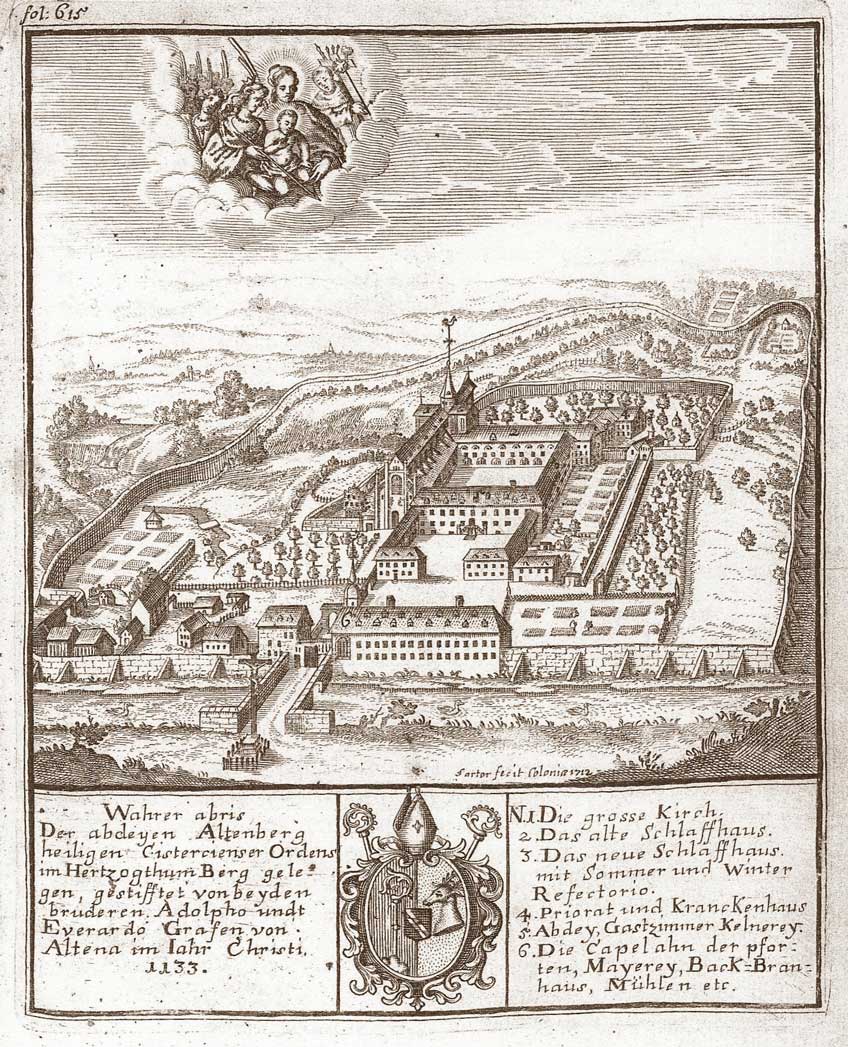 fol: 615
6
Sartor fecit Coloniæ 1712
Wahrer abris
Der abdeyen Altenberg
heiligen Cistercienser Ordens
im Hertzogthum Berg gele-
gen, gestifftet von beyden
bruderen. Adolpho undt
Everardo Grafen von
Altena im Iahr Christi.
1133.
N.1. Die grosse Kirch.
2. Das alte Schlaffhaus.
3. Das neue Schlaffhaus.
mit Sommer und Winter
Refectorio.
4. Priorat und KrancKenhaus
5. Abdey, Gastzimmer Kelnerey.
6. Die Capel ahn der pfor-
ten, Mayerey, BacK=Brau-
haus, Mühlen etc.